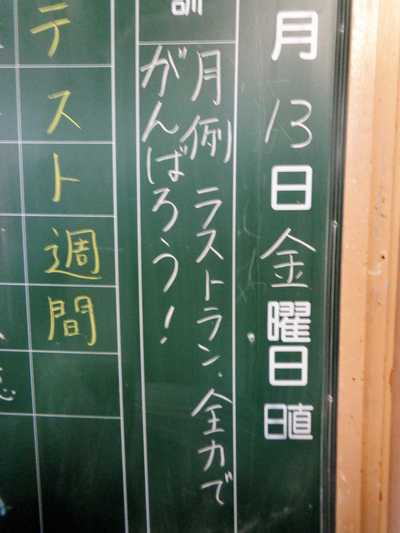 月13日金曜日
日直
訓
月例ラストラン、全力で
がんばろう!
テスト週間